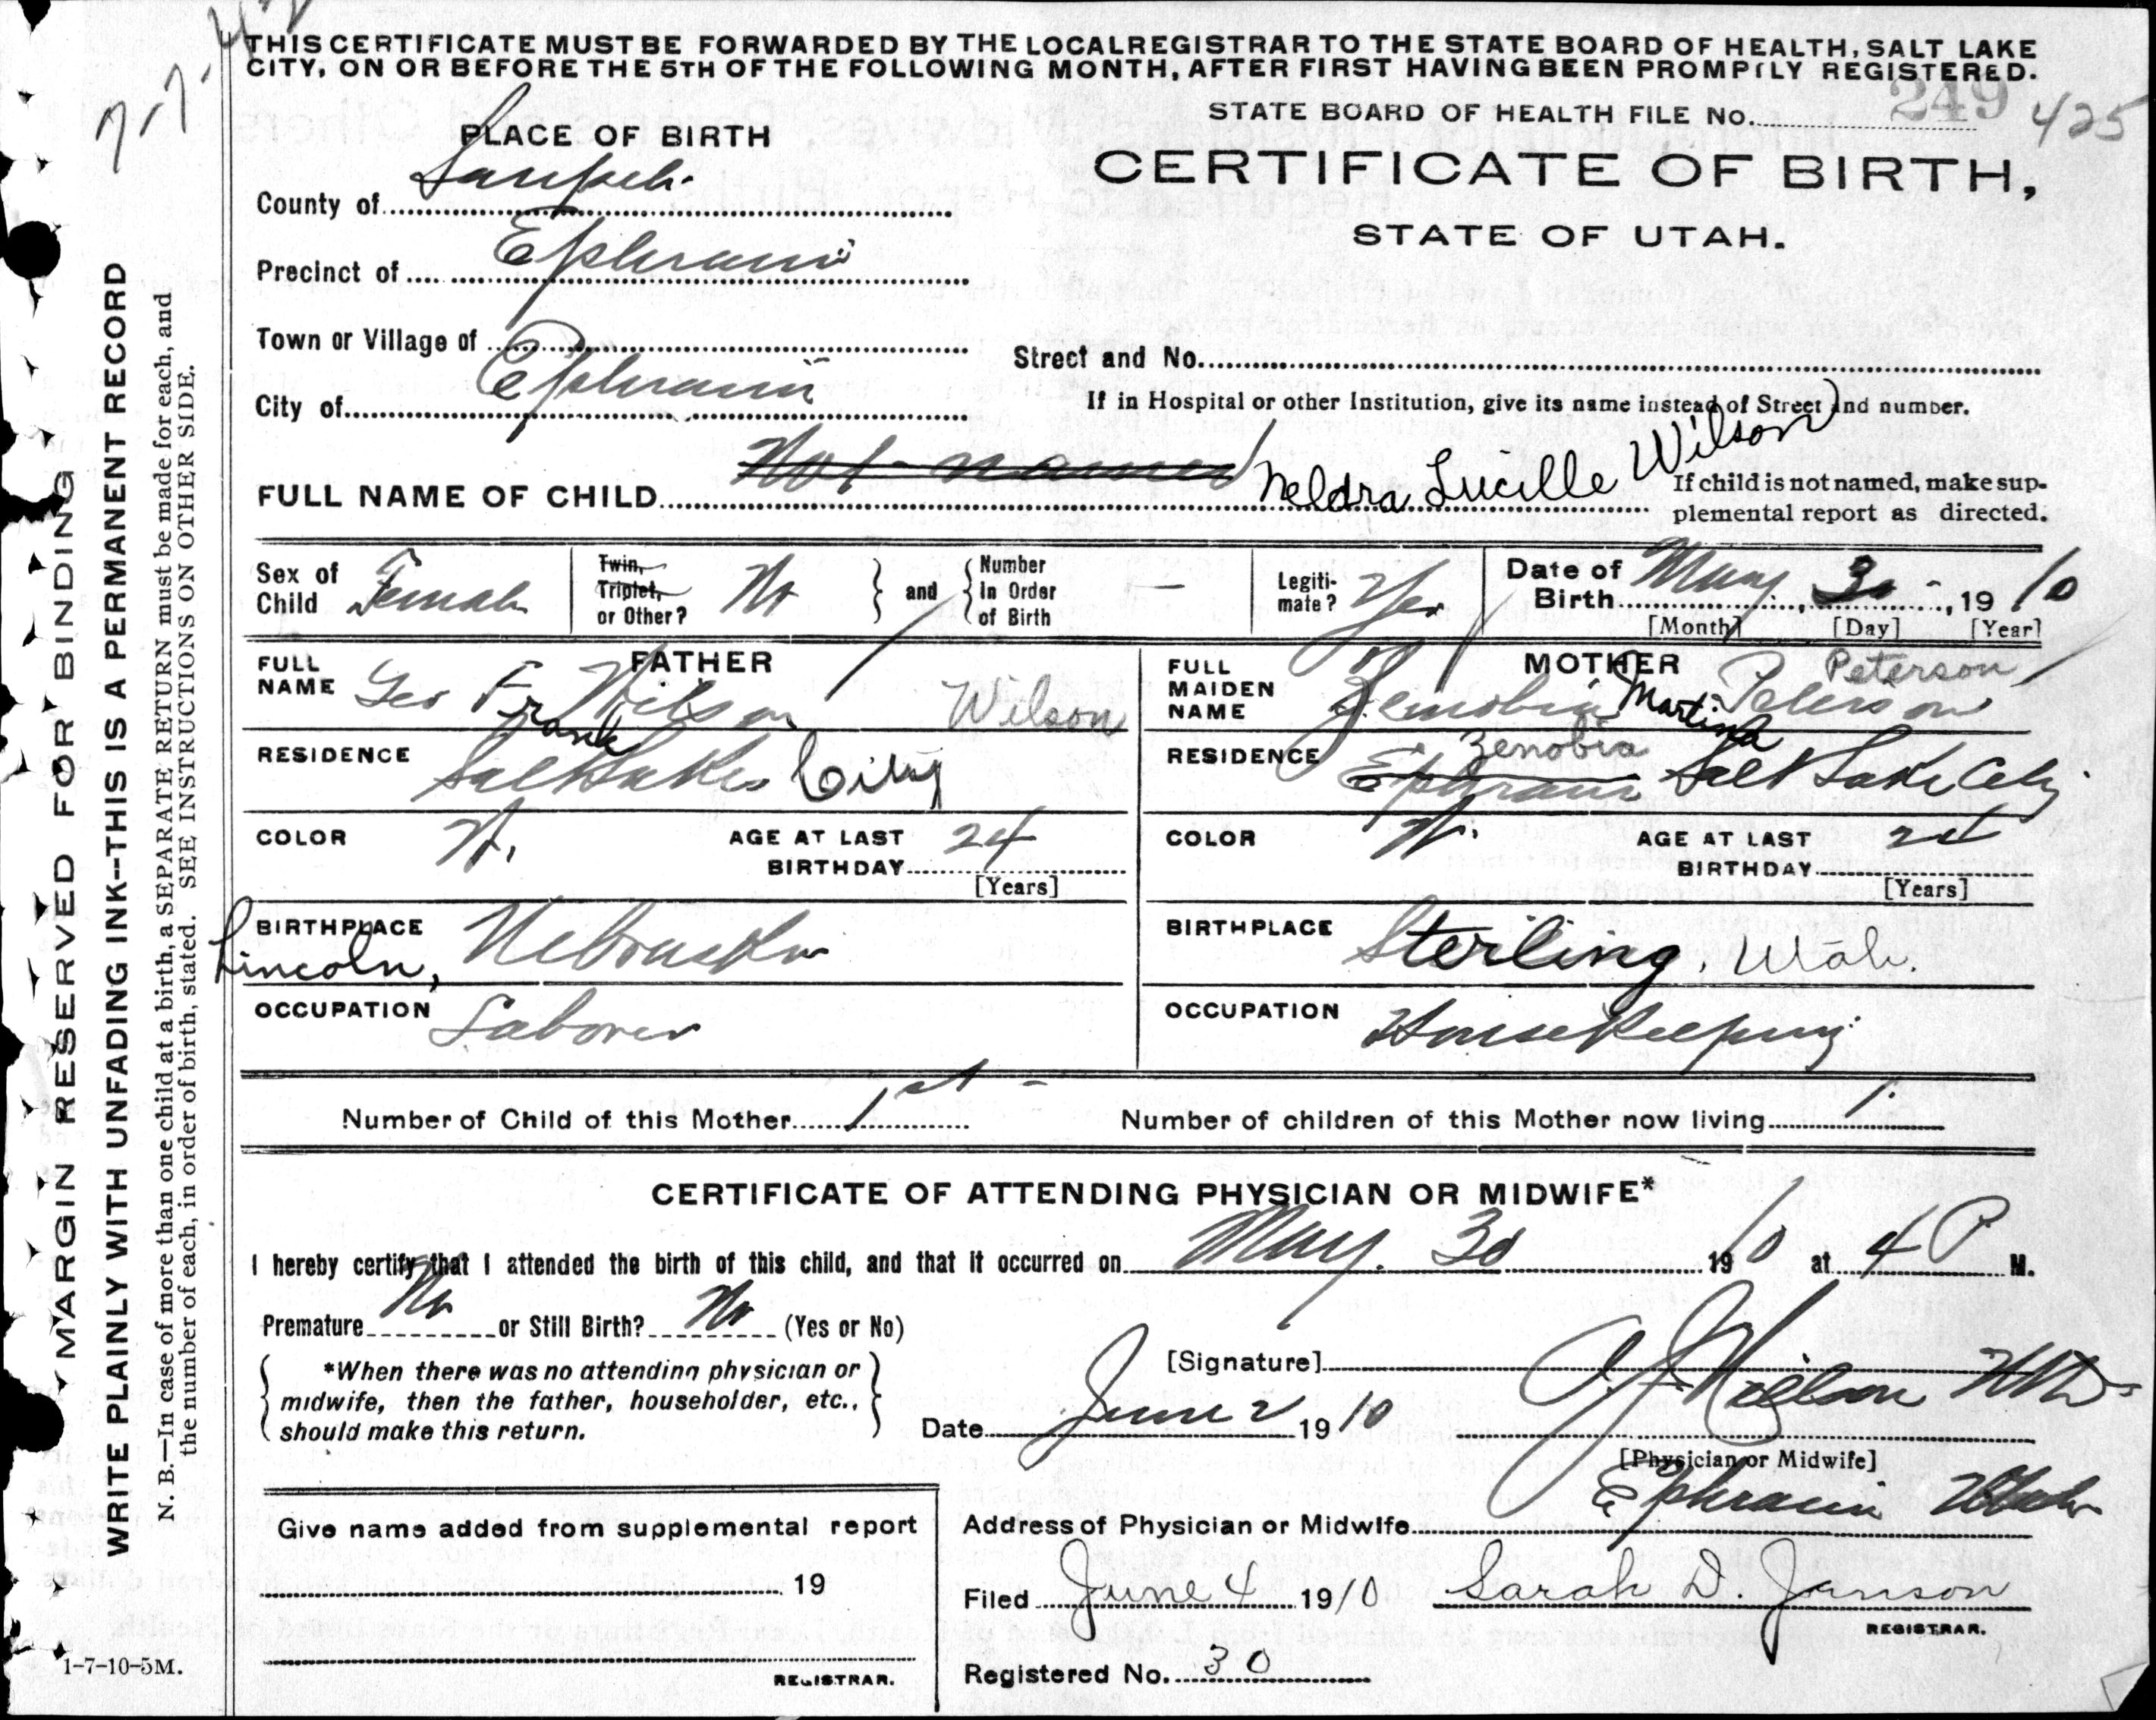 THIS CERTIFICATE MUST BE FORWARDED BY THE LOCAL REGISTRAR TO THE STATE BOARD OF HEALTH, SALT LAKE
CITY, ON OR BEFORE THE 5TH OF THE FOLLOWING MONTH, AFTER FIRST HAVING BEEN PROMPTLY REGISTERED.
STATE BOARD OF HEALTH FILE No. 249 425
PLACE OF BIRTH
CERTIFICATE OF BIRTH,
STATE OF UTAH.
County of Sanpete
Precinct of Ephraim
Town or Village of
Street and No.
City of Ephraim
If in Hospital or other Institution, give its name instead of Street and number.
FULL NAME OF CHILD Not named Neldra Lucille Wilson
If child is not named, make sup-
plemental report as directed.
Sex of Child Female
Twin, Triplet, or Other? No
and Number in Order of Birth —
Legiti-mate? Yes
Date of Birth May 30, 1910
[Month] [Day] [Year]
FATHER
FULL NAME Geo Frank Wilson Wilson
RESIDENCE Salt Lake City
COLOR W. AGE AT LAST BIRTHDAY 24
[Years]
BIRTHPLACE Lincoln, Nebraska
OCCUPATION Laborer
MOTHER
FULL MAIDEN NAME Zenobia Martina Peterson Peterson
Zenobia
RESIDENCE Ephraim Salt Lake City
COLOR W. AGE AT LAST BIRTHDAY
[Years]
BIRTHPLACE Sterling, Utah.
OCCUPATION Housekeeping
Number of Child of this Mother 1st
Number of children of this Mother now living 1.
CERTIFICATE OF ATTENDING PHYSICIAN OR MIDWIFE*
I hereby certify that I attended the birth of this child, and that it occurred on May. 30 1910 at 4 P M.
Premature No or Still Birth? No (Yes or No)
*When there was no attending physician or
midwife, then the father, householder, etc.,
should make this return.
[Signature] Nielson MD
Date June 2 1910
[Physician or Midwife]
Address of Physician or Midwife Ephraim Utah
Give name added from supplemental report
19
REGISTRAR.
Filed June 4 1910 Sarah D. Janson
REGISTRAR.
Registered No. 30
MARGIN RESERVED FOR BINDING
WRITE PLAINLY WITH UNFADING INK--THIS IS A PERMANENT RECORD
N. B.—In case of more than one child at a birth, a SEPARATE RETURN must be made for each, and
the number of each, in order of birth, stated. SEE INSTRUCTIONS ON OTHER SIDE.
1-7-10-5M.